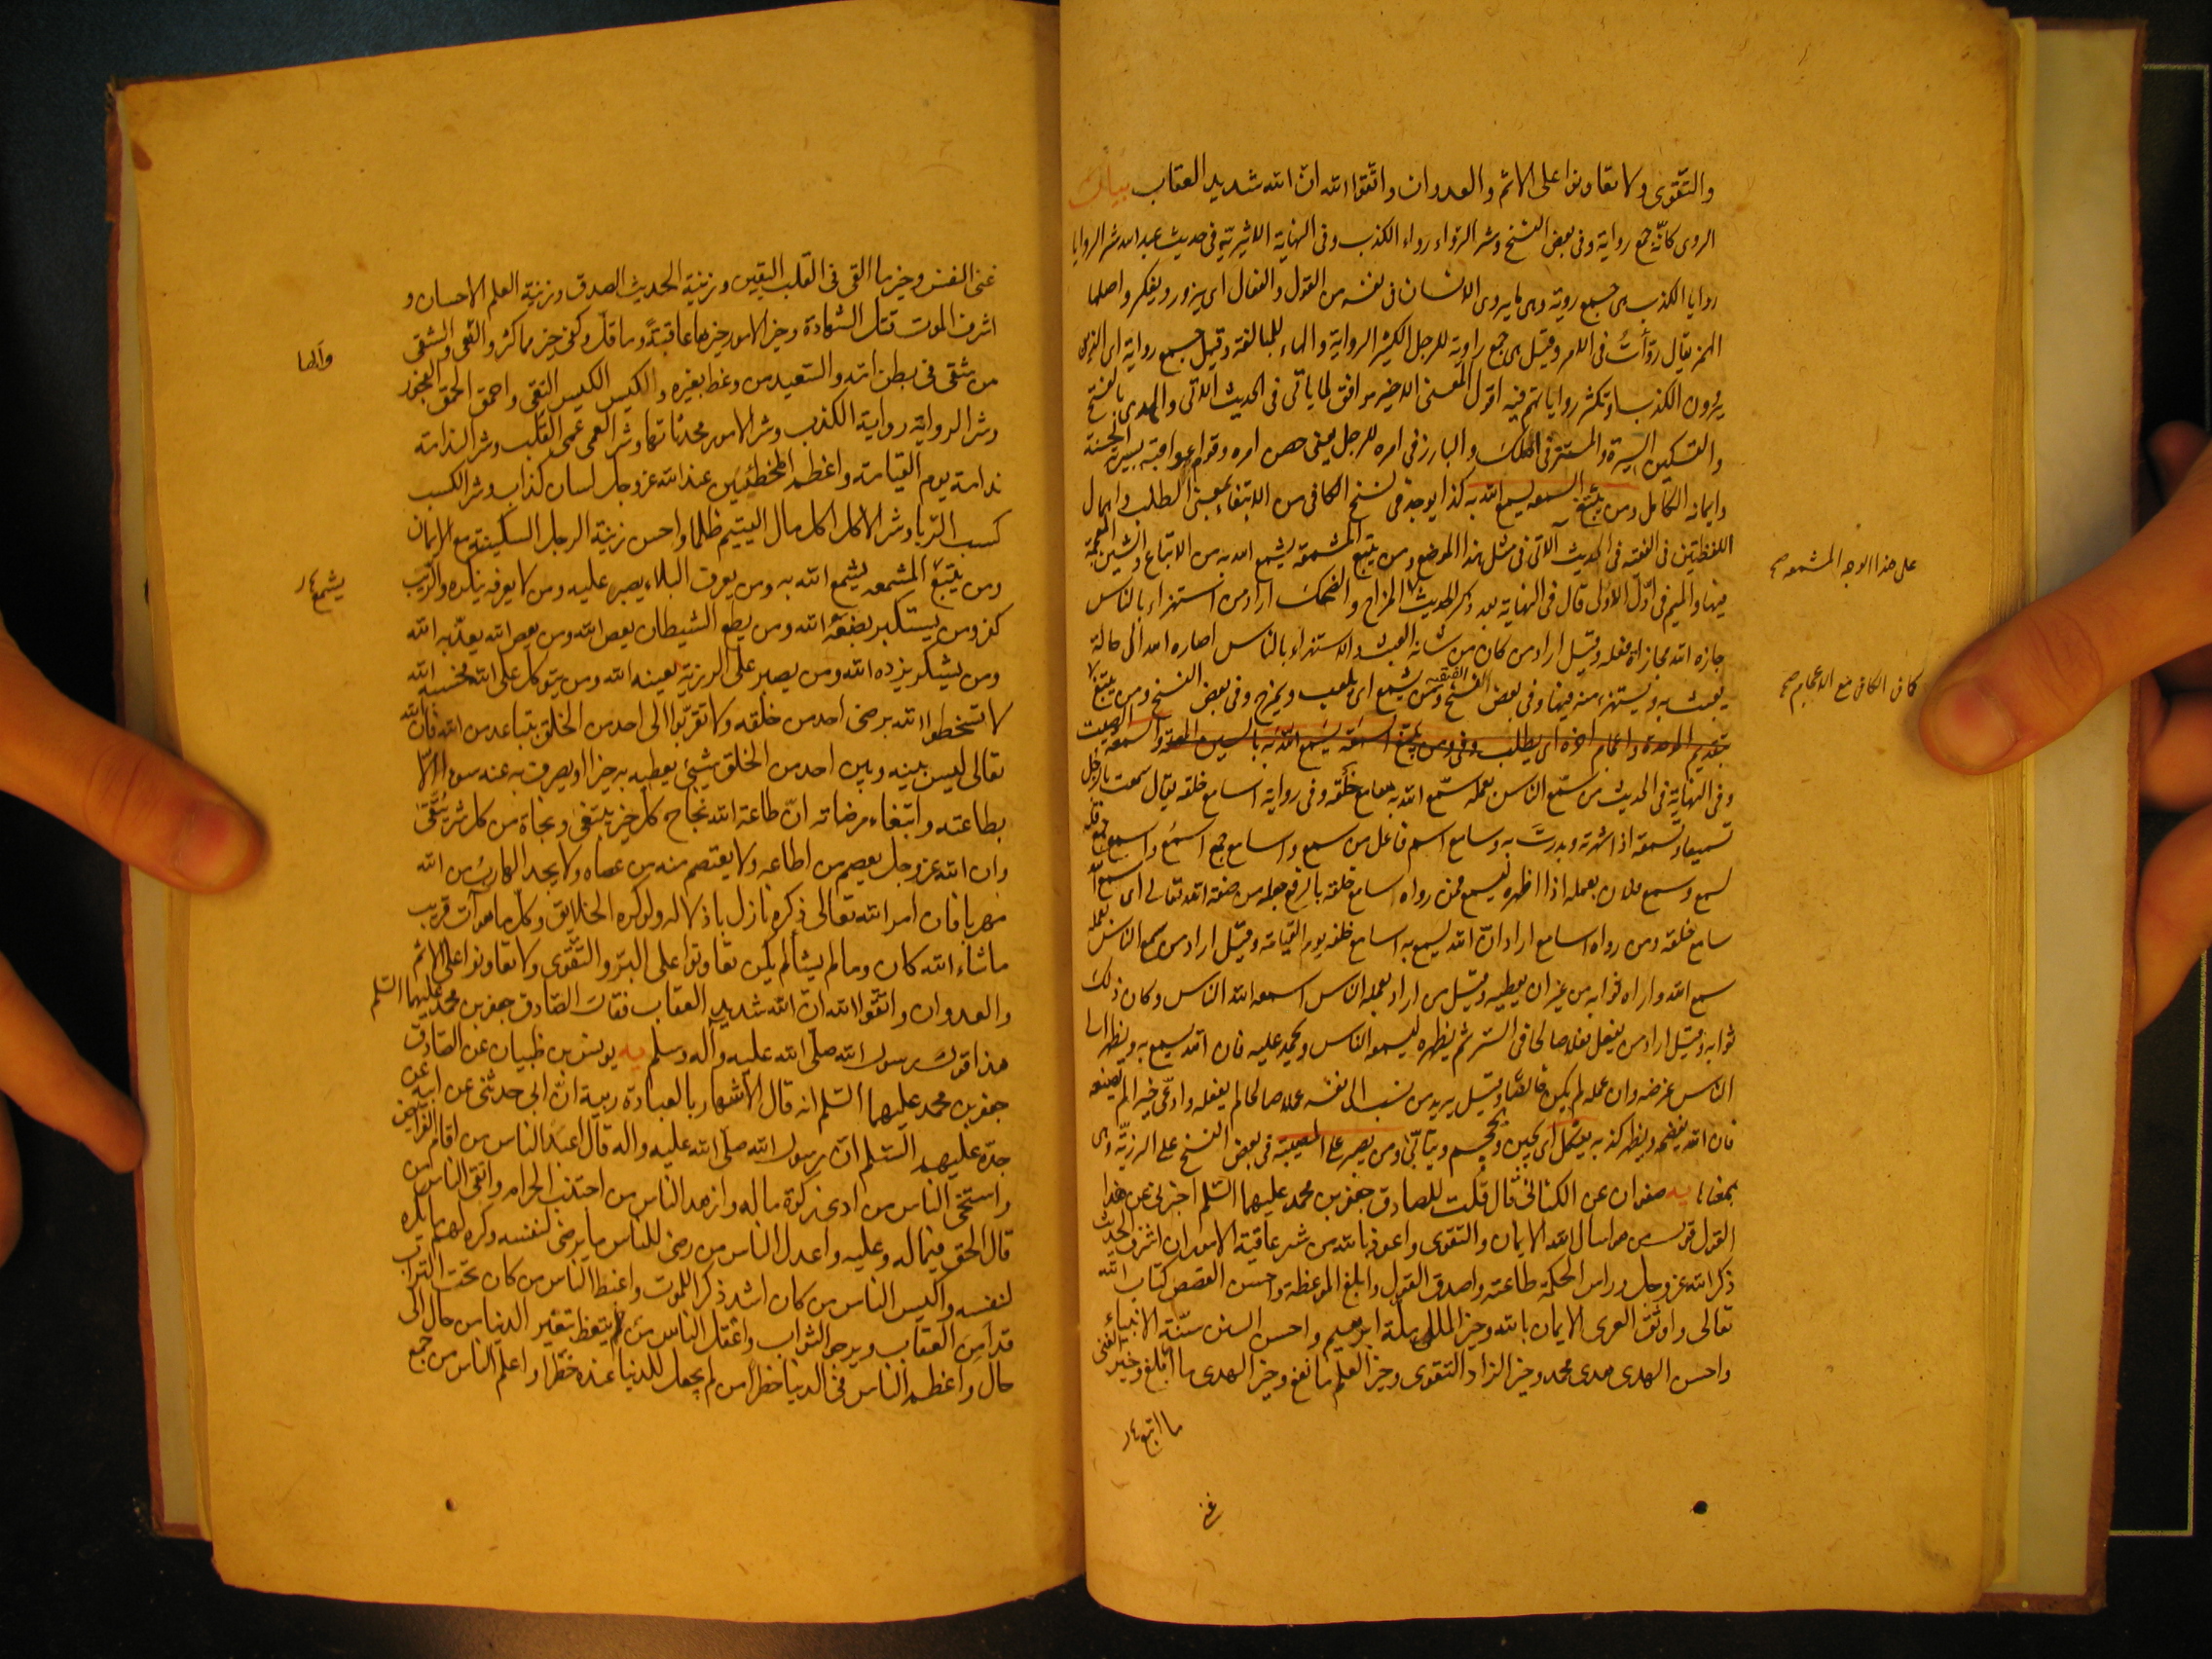 والتّقوى ولا تعاونوا على الاثم والعدوان واتّقوا الله انّ الله شديد العقاب بيان
الروى كانّه جمع رواية وفى بعض النسخ وشر الرواء رواء الكذب وفى النهاية الاثيريّة فى حديث عبدالله شر الروايا
روايا الكذب هى جمع روية وهى ما يروى الانسان فى نفسه من القول والفعال اى يزور ويفكر واصلها
الهمز يقال روّأت فى الامر وقيل هى جمع راوية للرجل الكثير الرواية والهاء للمبالغة وقيل جمع رواية اى الذين
يروون الكذب او تكثر رواياتهم فيه اقول المعنى الاخير موافق لما يأتى فى الحديث الآتى والهدى بالفتح
والتسكين السيرة والمستتر فى والبارز فى امره للرجل يعنى حصن امره وقوام عواقبه بسيرته الحسنة
وايمانه الكامل ومن يبتغ السمعه يسمع الله به كذا يوجد فى نسخ الكافى من الابتغاء بمعنى الطلب واهمال
اللفظتين فى الفقيه فى الحديث الآتى فى مثل هذا الموضع ومن يتبع المشمعة يشمع الله به من الاتباع والشين المعجمة
فيها والميم فى اوّل الاولى قال فى النهاية بعد ذكر الحديث المزاح والضحك اراد من استهزاء بالناس
جازه الله مجازاة فعله وقيل اراد من كان من شانه العبث والاستهزاء بالناس اصاره الله الى حالة
يعبث به ويستهزء منه فيها وفى بعض النسخ ومن يشمع اى يلعب ويمزح وفى بعض النسخ ومن يبتغ
بتقديم الموحدة واعجام اخره اى يطلب وفى ومن يبتغ السمعة يسمع الله به بالسين المهملة والسمعة الصيت
وفى النهاية فى الحديث من سمّع الناس بعمله سمّع الله به سامع خلقه وفى رواية اسامع خلقه يقال سمعت بالرجل
تسميعا وتسمعة اذا شهرته ونددت به وسامع اسم فاعل من سمع واسامع جمع اسمُع واسمع جمع قلّة
لسمع وسمع فلان بعمله اذا اظهره ليسمع فمن رواه سامع خلقه بالرفع جعله من صفة الله تعالى اى سمع الله
سامع خلقه ومن رواه اسامع اراد انّ الله يسمع به اسامع خلقه يوم القيامة وقيل اراد من سمع الناس بعمله
سمع الله واراه ثوابه من غير ان يعطيه وقيل من اراد بعمله الناس اسمعه الله الناس وكان ذلك
ثوابه وقيل اراد من يفعل فعلا صالحا فى السّر ثم يظهره ليسمعه الناس ويحمد عليه فان الله يسمع به ويظهر الى
النّاس غرضه وان عمله لم يكن خالصًا وقيل يريد من نسب الى نفسه عملا صالحا لم يفعله وادّعى خيرا لم يصنعه
فان الله يفضحه ويظهر كذبه ينكل اى يجبن ويحجم ويتأنّى ومن يصبر على المصيبة فى بعض النسخ على الرزيّة وهى
بمعناها يه صفوان عن الكنانى قال قلت للصادق جعفر بن محمد عليهما السّلم اخبرنى عن هذا
القول قول من هو اسال الله الايمان والتقوى واعوذ بالله من شر عاقبة الامور ان اشرف الحديث
ذكر الله عزوجل ورأس الحكمة طاعته واصدق القول وابلغ الموعظة واحسن القصص كتاب الله
تعالى واوثق العرى الايمان بالله وخير الملل ملّة ابرهيم واحسن السنن سنّة الانبياء
واحسن الهدى هدى محمد وخير الزاد التقوى وخير العلم ما نفع وخير الهدى ما اتبع وخير الغنى
على هذا الوجه المشمعه صح
ما اتبع
غنى
غنى النفس وخير ما القى فى القلب اليقين وزينة الحديث الصدق وزينة العلم الاحسان و
اشرف الموت قتل الشهادة وخير الامور خيرها عاقبةً وما قلّ وكفى خير مما كثر والهى والشقى
من شقى فى بطن امّه والسّعيد من وعظ بغيره والكيس الكيس التقى واحمق الحمق الفجور
وشر الرواية رواية الكذب وشر الامور محدثاتها وشر العمى عمى القلب وشر الندامة
ندامة يوم القيامة واعظم المخطئين عند الله عزوجل لسان كذاب وشر الكسب
كسب الرّبا وشر الاكل اكل مال اليتيم ظلما واحسن زينة الرجل السكينة مع الايمان
ومن يتبع المشمعه يشمع الله به ومن يعرف البلاء يصبر عليه ومن لا يعرفه ينكره والريب
كفر ومن يستكبر يضعه الله ومن يطع الشيطان يعص الله ومن يعص الله يعذّبه الله
ومن يشكر يزده الله ومن يصبر على الرزية يعينه الله ومن يتوكل على الله فحسبه الله
لا تسخطوا الله برضى احد من خلقه ولا تقرّبوا الى احد من الخلق بتباعد من الله فان الله
تعالى ليس بينه وبين احد من الخلق شيئ يعطيه به خيرا او يصرف به عنه سوءا الّا
بطاعته وابتغاء مرضاته انّ طاعة الله نجاح كل خير يبتغى ونجاة من كل شر يُتّقى
وان الله عزوجل يعصم من اطاعه ولا يعتصم منه من عصاه ولا يجد الهارب من الله
مهربا فان امر الله تعالى ذكره نازل باذلاله ولو كره الخلائق وكلّ ما هو آت قريب
ما شاء الله كان وما لم يشأ لم يكن تعاونوا على البرّ والتّقوى ولا تعاونوا على الاثم
والعدوان واتّقوا الله انّ الله شديد العقاب فقال الصّادق جعفر بن محمد عليهما السّلم
هذا قول رسول الله صلّى الله عليه وآله وسلم يه يونس بن ظبيان عن الصّادق
جعفر بن محمد عليهما السّلم انه قال الاشتهار بالعبادة ريبة انّ ابى حدثنى عن ابيه عن
جدّه عليهم السّلم انّ رسول الله صلّى الله عليه واله قال اعبد الناس من اقام الفرائض
واسخى الناس من ادى زكوة ماله وازهد الناس من اجتنب الحرام واتقى الناس من
قال الحق فيما له وعليه واعدل الناس من رضى للناس ما يرضى لنفسه وكره لهم ما يكره
لنفسه واكيس الناس من كان اشد ذكرا للموت واغبط الناس من كان تحت التراب
قد امِنَ العقاب ويرجو الثواب واغفل الناس من لم يتعظ بتغير الدنيا من حال الى
حال واعظم الناس فى الدنيا خطرا من لم يجعل للدنيا عنده خطرا واعلم الناس من جمع
والها
يشمع